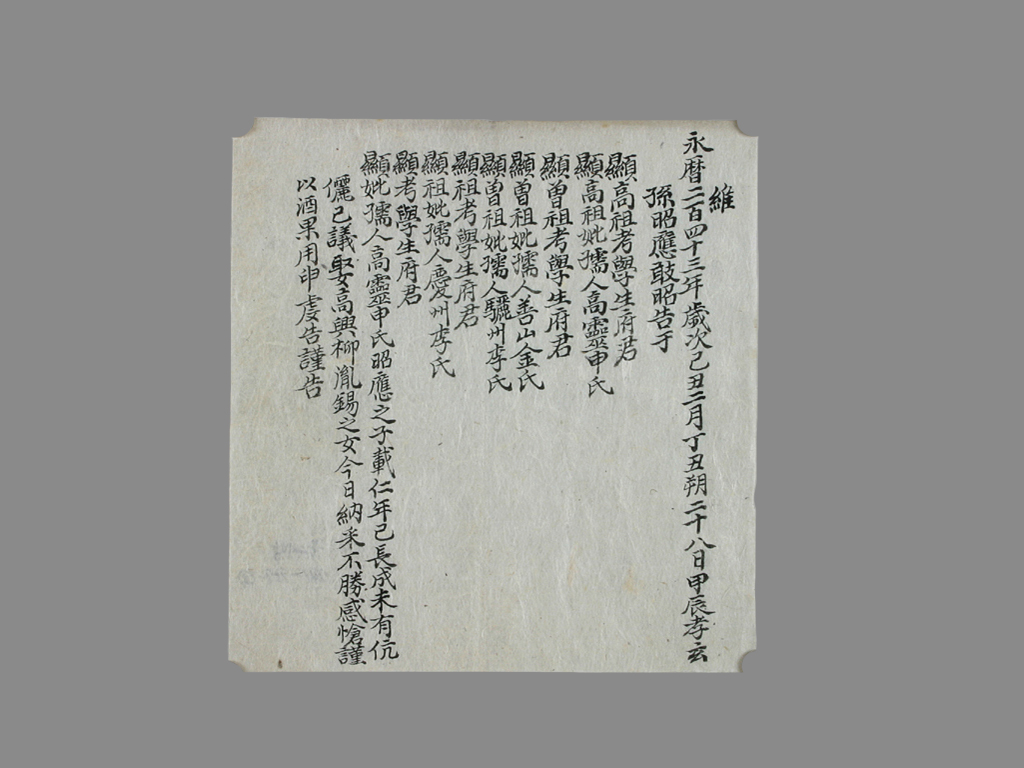 維
永曆二百四十三年歲次己丑二月丁丑朔二十八日甲辰孝玄
孫昭應敢昭告于
顯高祖考學生府君
顯高祖妣孺人高靈申氏
顯曾祖考學生府君
顯曾祖妣孺人善山金氏
顯曾祖妣孺人驪州李氏
顯祖考學生府君
顯祖妣孺人慶州李氏
顯考學生府君
顯妣孺人高靈申氏昭應之子載仁年已長成未有伉
儷已議娶高興柳胤錫之女今日納采不勝感愴謹
以酒果用申虔告謹告